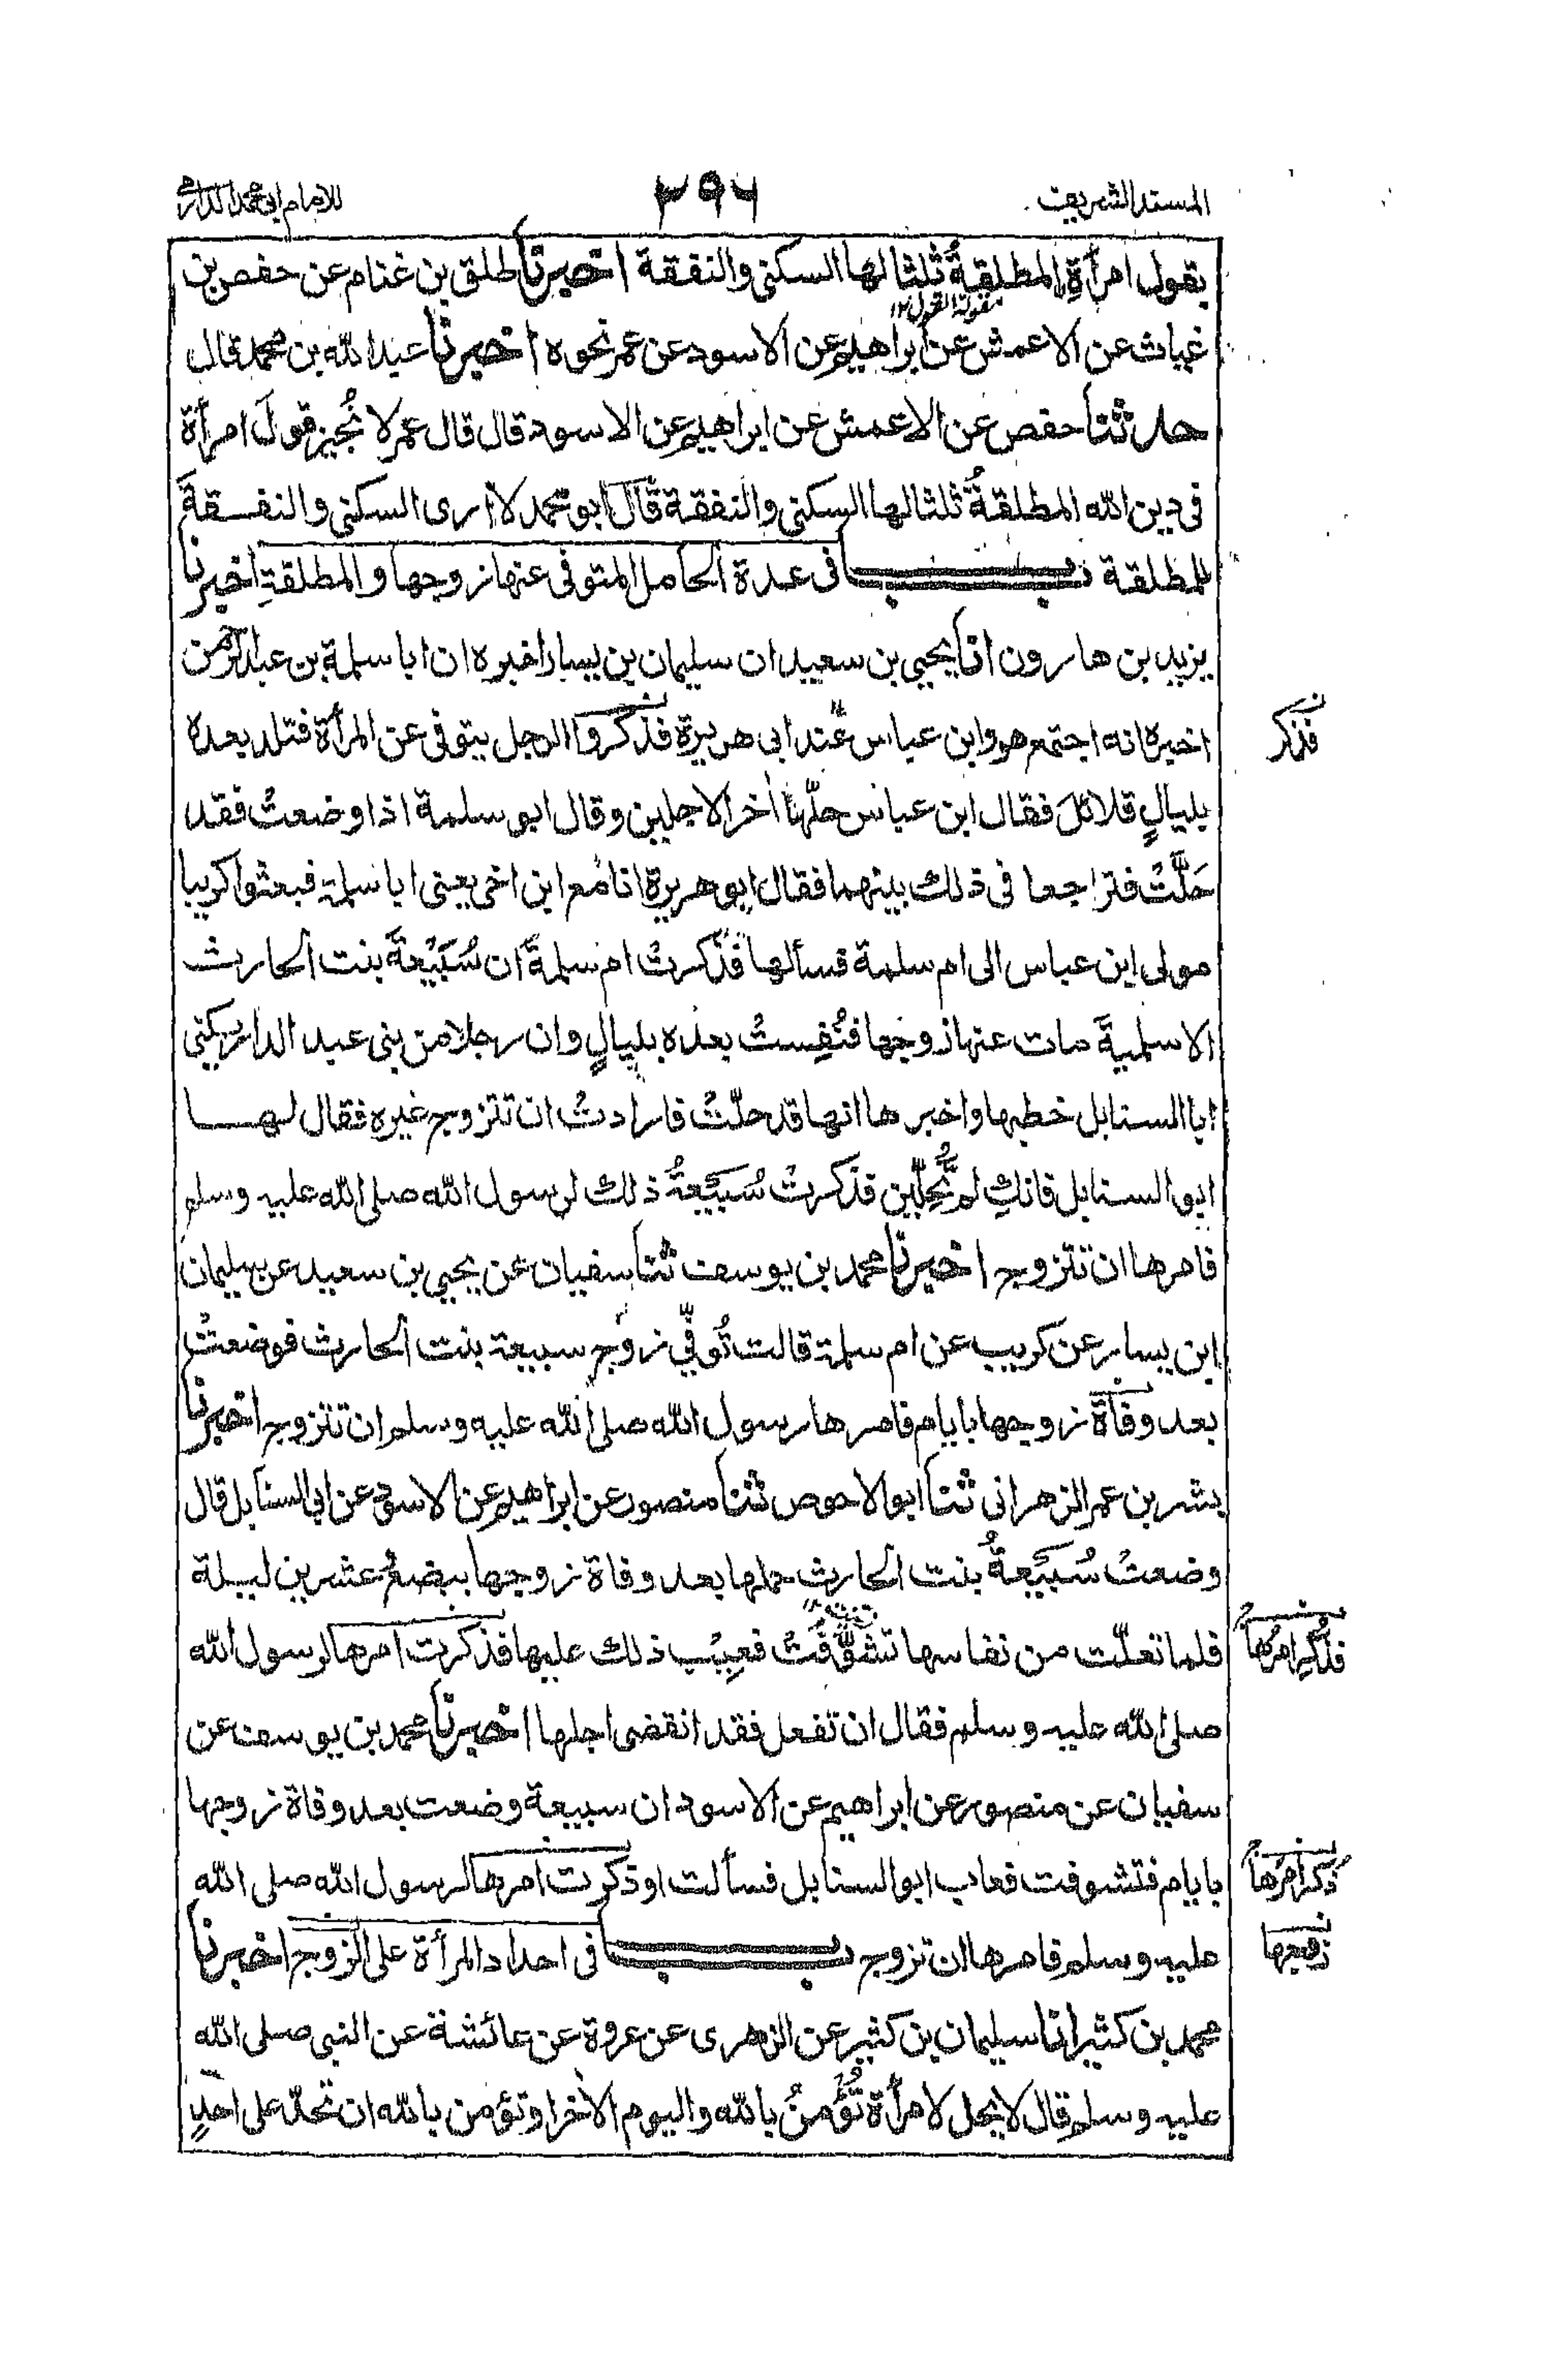 المسند الشريف ٢٩٦ للامام ابي محمد الدارمي
بقول امرأةٍ المطلقةُ ثلثا لها السكنى والنفقة اخبرنا طلق بن غنام عن حفص بن
مقولة القول ١٢
غياث عن الاعمش عن ابراهيم عن الاسود عن عمر نحوه اخبرنا عبد الله بن محمد قال
حدثنا حفص عن الاعمش عن ابراهيم عن الاسود قال قال عمر لا نُجيز قولَ امرأة
فى دين الله المطلقةُ ثلثا لها السكنى والنفقة قال ابو محمد لا ارى السكنى والنفقةَ
للمطلقة باب فى عدة الحامل المتوفى عنها زوجها والمطلقةِ اخبرنا
يزيد بن هارون انا يحيى بن سعيد ان سليمان بن يسار اخبره ان ابا سلمة بن عبد الرحمن
اخبره انه اجتمع هو وابن عباس عند ابى هريرة فذكروا الرجل يتوفى عن المرأة فتلد بعده
فذكر
بليالٍ قلائلَ فقال ابن عباس حلّها اخر الاجلين وقال ابو سلمة اذا وضعتْ فقد
حَلَّتْ فتراجعا فى ذلك بينهما فقال ابو هريرة انا مع ابن اخى يعنى ابا سلمة فبعثوا كريبا
مولى ابن عباس الى ام سلمة فسألها فذكرتْ ام سلمةَ ان سُبَيْعةَ بنت الحارث
الاسلميةَ مات عنها زوجها فنُفِستْ بعده بليالٍ وان رجلا من بنى عبد الدار يكنى
ابا السنابل خطبها واخبرها انها قد حلّتْ فارادتْ ان تتزوج غيره فقال لهــا
ابو السنابل فانكِ لم تُحِلّين فذكرتْ سُبَيْعةُ ذلك لرسول الله صلى الله عليه وسلم
فامرها ان تتزوج اخبرنا محمد بن يوسف ثنا سفيان عن يحيى بن سعيد عن سليمان
ابن يسار عن كريب عن ام سلمة قالت تُوفّي زوج سبيعة بنت الحارث فوضعتْ
بعد وفاة زوجها بايام فامرها رسول الله صلى الله عليه وسلم ان تتزوج اخبرنا
بشر بن عمر الزهرانى ثنا ابو الاحوص ثنا منصور عن ابراهيم عن الاسود عن ابي السنابل قال
وضعتْ سُبَيْعةُ بنت الحارث حملها بعد وفاة زوجها ببضع عشرين ليلة
فلما تعلّت من نفاسها تشوّفتْ فعِيبَ ذلك عليها فذكرت امرها لرسول الله
فذُكِر امرُها
صلى الله عليه وسلم فقال ان تفعل فقد انقضى اجلها اخبرنا محمد بن يوسف عن
سفيان عن منصور عن ابراهيم عن الاسود ان سبيعة وضعت بعد وفاة زوجها
بايام فتشوفت فعاب ابو السنابل فسألت او ذكرت امرها لرسول الله صلى الله
ذكر امرها
عليه وسلم فامرها ان تزوج باب فى احداد المرأة على الزوج اخبرنا
زوجها
محمد بن كثير انا سليمان بن كثير عن الزهرى عن عروة عن عائشة عن النبى صلى الله
عليه وسلم قال لا يحل لامرأة تُؤْمنُ بالله واليوم الاخر او تؤمن بالله ان تحدّ على احدٍ